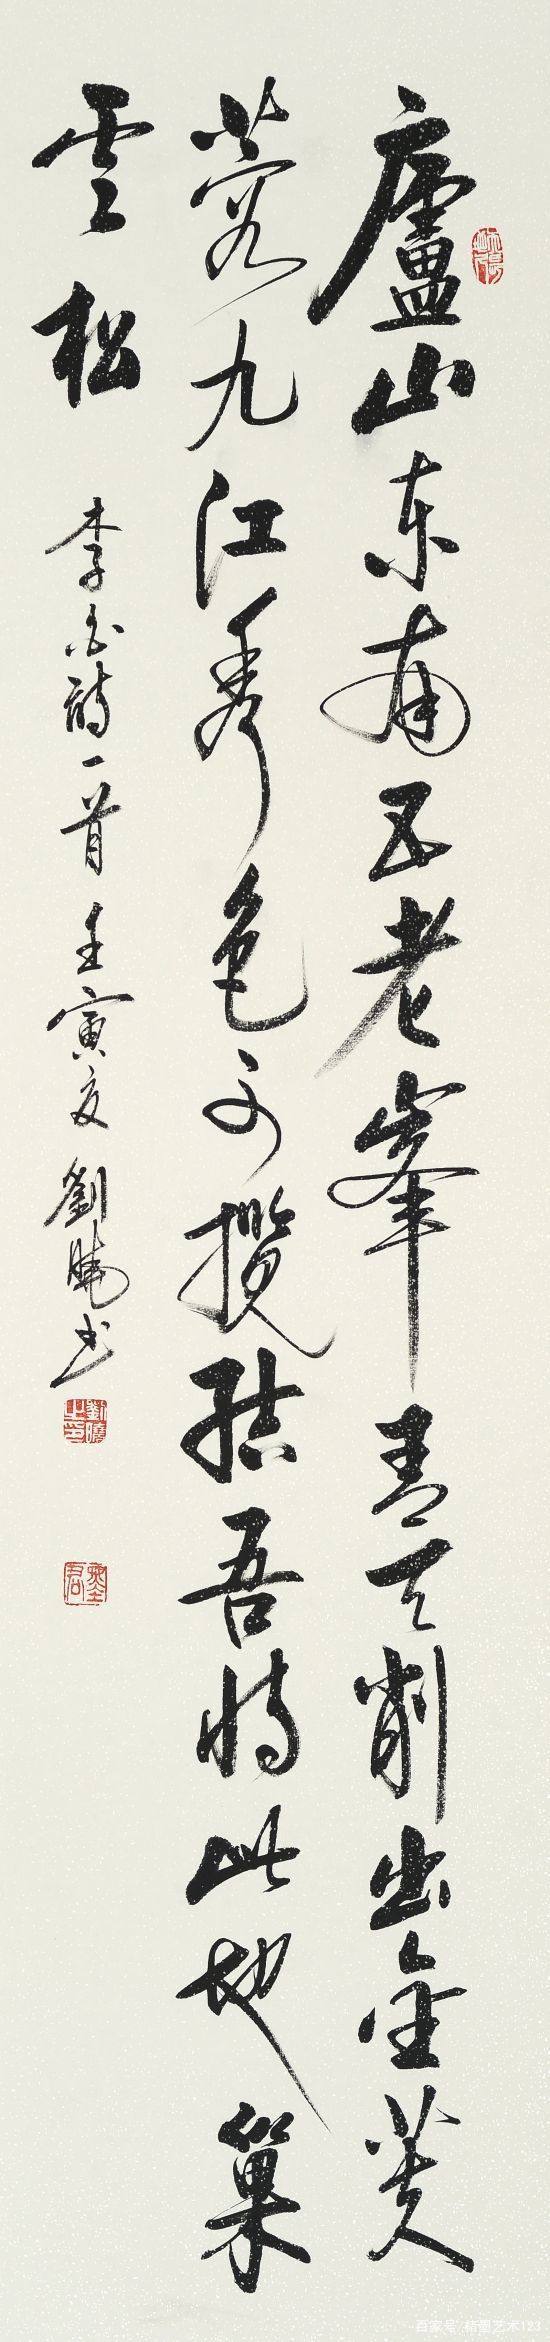 廬山东南五老峯青天削出金芙
蓉九江秀色可攬結吾將此地巢
雲松
李白詩一首 壬寅夏 劉曉书
劉曉之印
百家号/精墨艺术123